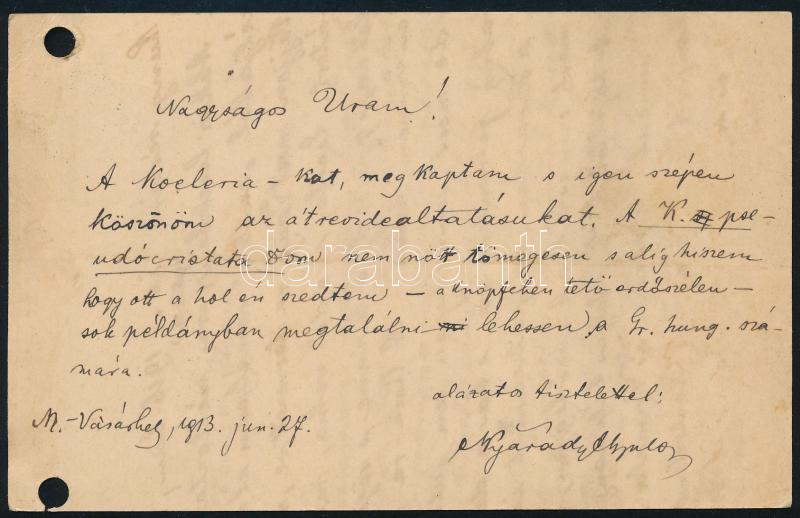 Nagyságos Uram!
A Koeleria-kat, megkaptam s igen szépen
köszönöm az átrevidealtatásukat. A K. pse-
udocristata Dom nem nőtt tömegesen s alig hiszem
hogy ott a hol én szedtem – a knöpfchen tető erdőszélen –
sok példányban megtalálni lehessen a Gr. hung. szá-
mára.
alázatos tisztelettel:
M.-Vásárhely, 1913. jun. 27.
Nyárády
darabanth